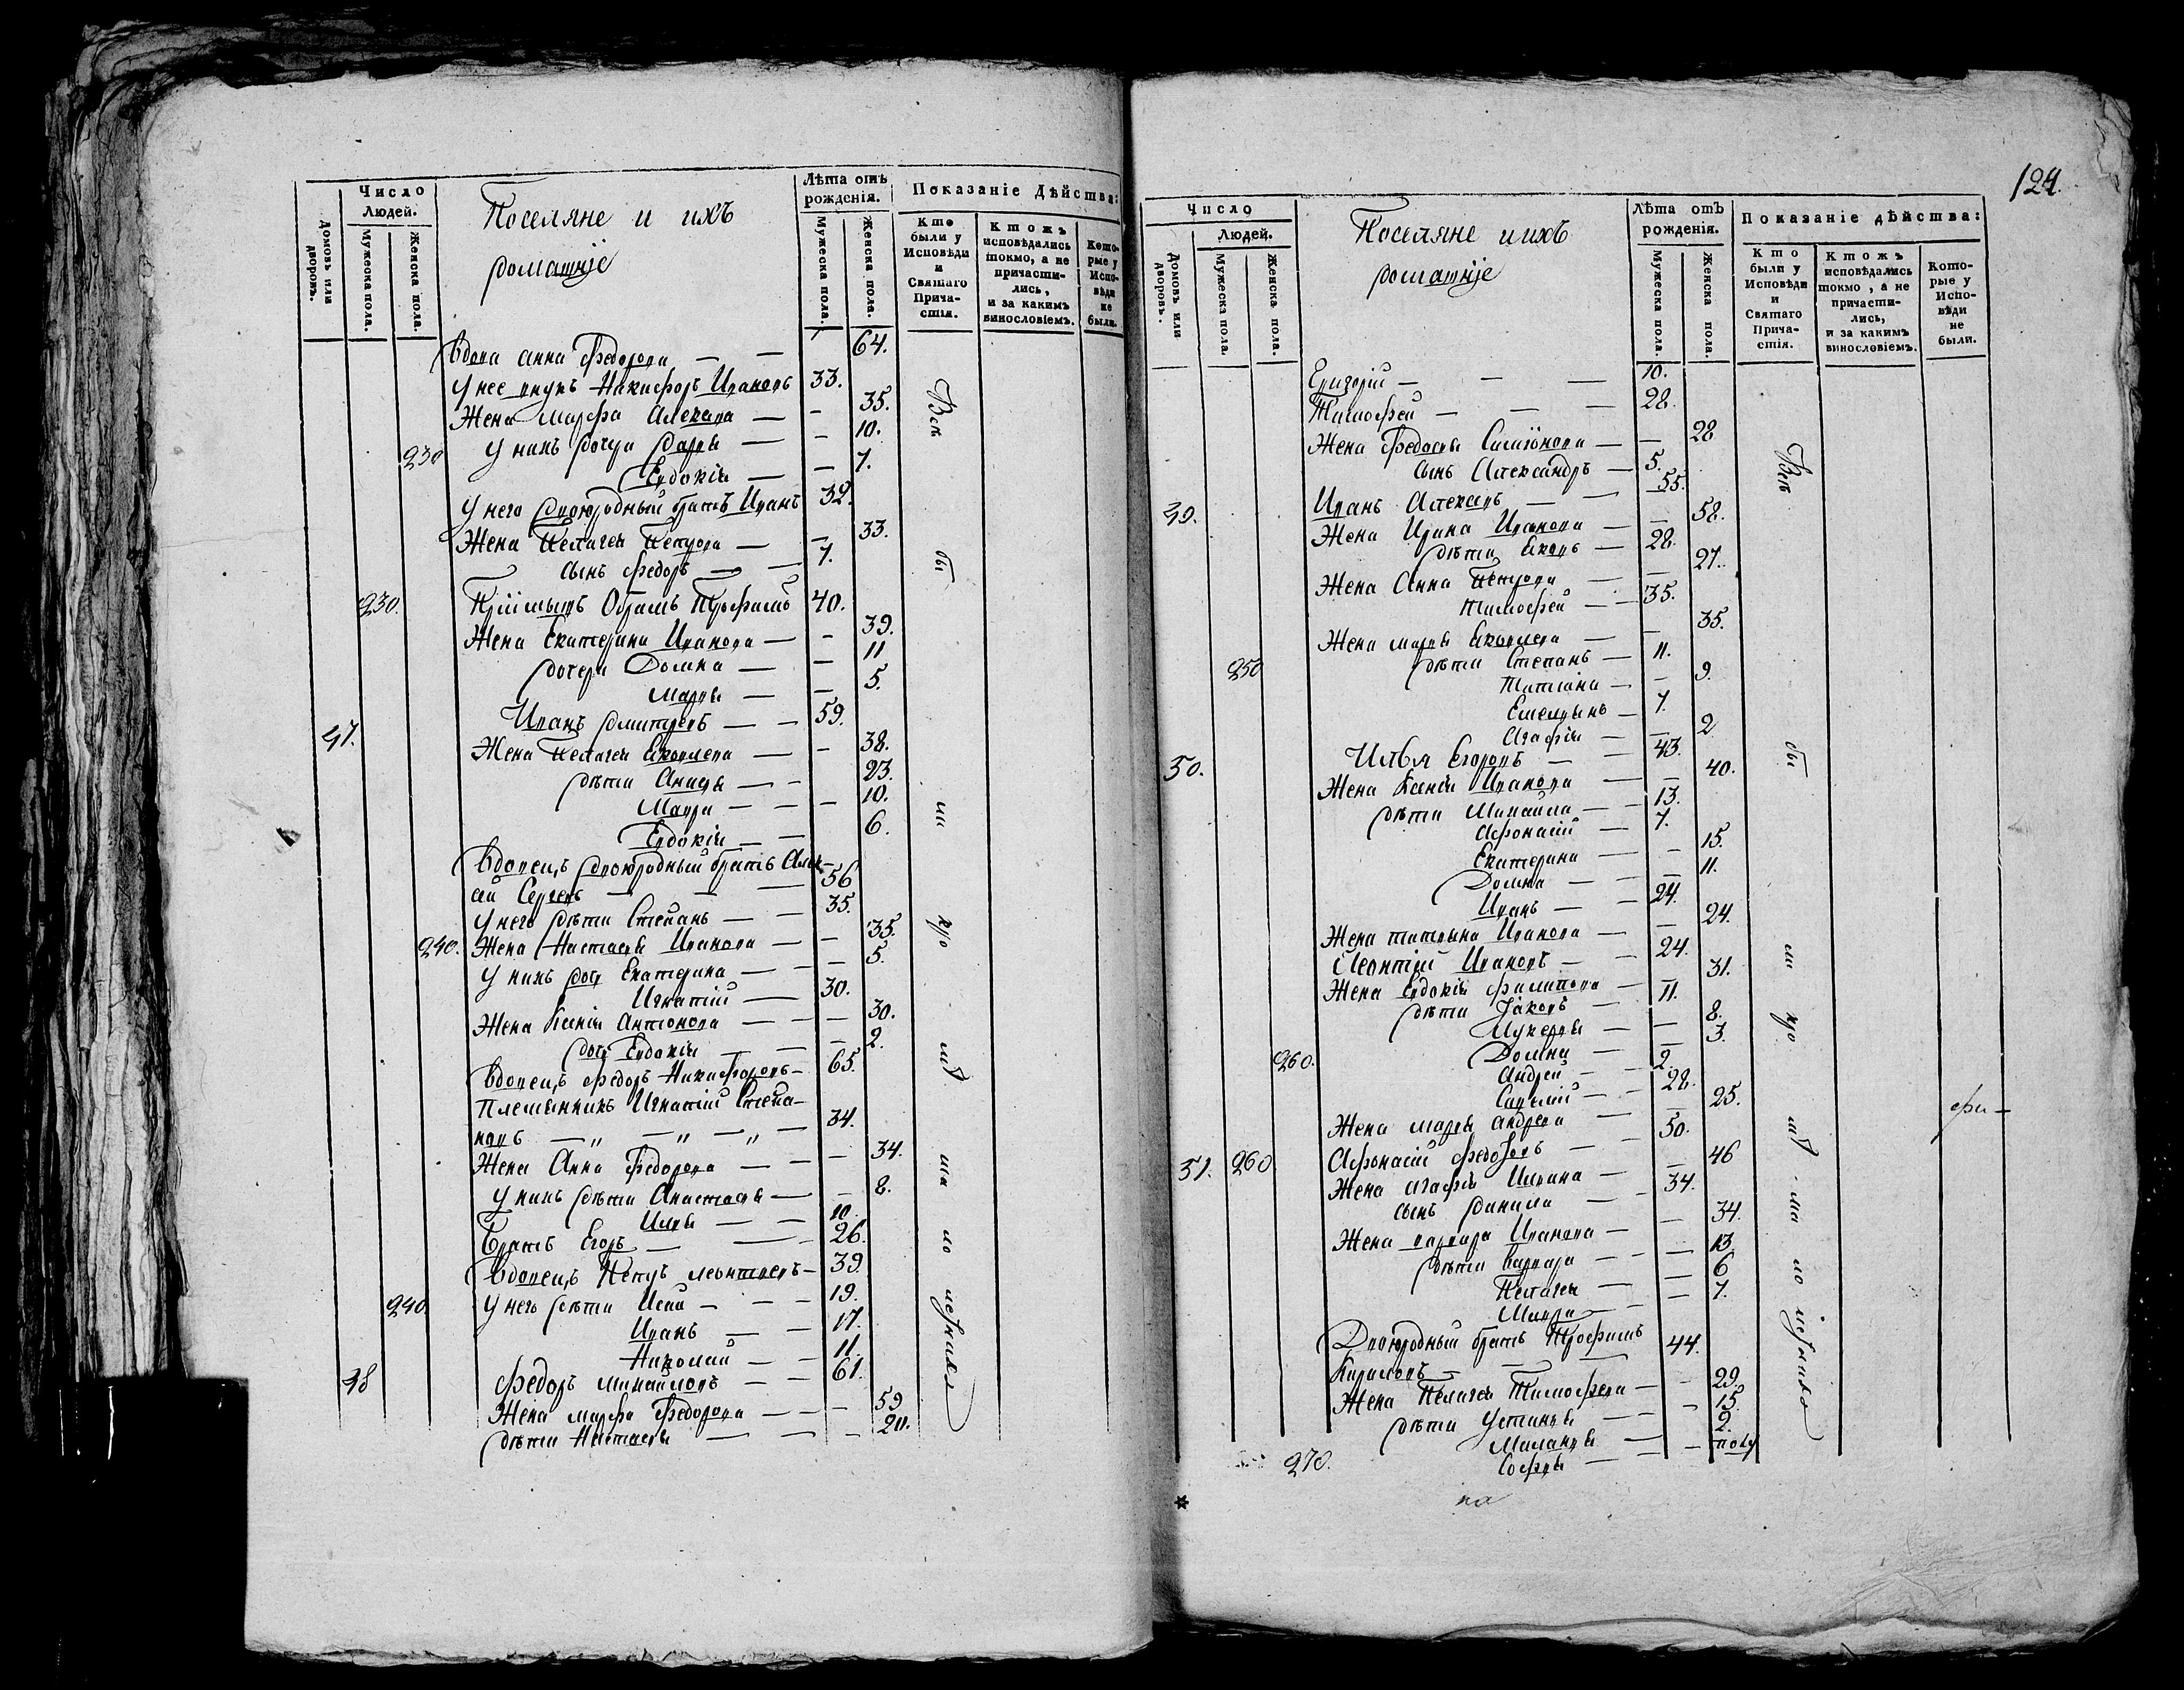 Число
Людей.
Домовъ или дворовъ.
Мужеска пола.
Женска пола.
Поселяне и ихъ
домашніе
Лѣта отъ
рожденія.
Мужеска пола.
Женска пола.
Показаніе Дѣйства:
Кто были у Исповѣди и Святаго Причастія.
Ктожъ исповѣдались токмо, а не причастились, и за какимъ винословіемъ.
Которые у Исповѣди не были.
Вдова Анна Федорова — — 64.
У нее внукъ Никифоръ Ивановъ 33.
Жена Марфа Алекзева — - 35.
230 У нихъ дочери Дарья — - 10.
Евдокія — — 7.
У него двоюродный братъ Иванъ 32.
Жена Пелагея Петрова — — 33.
сынъ Федоръ — — 7.
230. Пріимышъ Обрамъ Трофимовъ 40.
Жена Екатерина Иванова — - 39.
дочери Домна — — 11
Марья — — 5.
47. Иванъ Дмитревъ — — 59.
Жена Пелагея Яковлева — - 38.
дѣти Анисья — - 23.
Мавра — — - 10.
Евдокія — — 6.
Вдовецъ двоюродный братъ Алек-
ѣй Сергеевъ — — — 56
У него дѣти Степанъ — — 35.
240. Жена Настасья Иванова — - 35.
У нихъ дочь Екатерина — - 5.
Игнатій — 30.
Жена Ксенія Антонова — — - 30.
дочь Евдокія — — - 2.
Вдовецъ Федоръ Никифоровъ — 65.
Племянникъ Игнатій Степа-
новъ — „ — „ — „ — 34.
Жена Анна Федорова — — - 34.
У нихъ дѣти Анастасья — - 8.
Илья — — 10.
Братъ Егоръ — — — 26.
Вдовецъ Петръ Леонтьевъ — 39.
240. У него дѣти Исай — — 19.
Иванъ — — 17.
Николай — — 11.
48 Федоръ Михайловъ — — 61.
Жена Марфа Федорова — — - 59
дѣти Настасья — — - 20.
Всѣ бы ли хро мѣ ма ло лѣтнихъ
124.
Число
Людей.
Домовъ или дворовъ.
Мужеска пола.
Женска пола.
Поселяне и ихъ
домашніе
Лѣта отъ
рожденія.
Мужеска пола.
Женска пола.
Показаніе дѣйства:
Кто были у Исповѣди и Святаго Причастія.
Ктожъ исповѣдались токмо, а не причастились, и за какимъ винословіемъ.
Которые у Исповѣди не были.
Григорій — — — 10.
Тимофей — — — 28.
Жена Федосья Симіонова — — 28
сынъ Александръ — 5.
49. Иванъ Алексѣевъ — — 55.
Жена Ирина Иванова — — 58.
дѣти Яковъ — 28.
Жена Анна Петрова — — 27.
Тимофей — — 35.
Жена Марья Яковлева — — 35.
250 дѣти Степанъ — 11.
Татіана — - 9.
Емельянъ — 7.
Агафія — — 2
50. Илья Егоровъ — — 43.
Жена Ксенія Иванова — — 40.
дѣти Михайла — — 13.
Афонасій — 7.
Екатерина — - 15.
Домна — — — 11.
Иванъ — — 24.
Жена Татьяна Иванова — — 24.
Леонтій Ивановъ — — 24.
Жена Евдокія Филипова — — 31.
дѣти Іаковъ — 11.
Лукерья — — 8.
260. Домна — — 3.
Андрей — — 2.
Савелій — — 28.
Жена Марья Андреева — — 25.
51. 260 Афонасій Федоровъ — — 50.
Жена Агафья — — 46
сынъ Данила — — 34.
Жена Варвара Иванова — — 34.
дѣти Варвара — — 13.
Пелагея — — 6
Мавра — — 7.
Двоюродный братъ Трофимъ
Кириловъ — — — 44.
Жена Пелагея Тимофеева — - 29.
дѣти Устинья — - 15.
Маланья — — 2.
270. Софья — — — полу
Всѣ бы ли хро мѣ ма ло лѣтнихъ